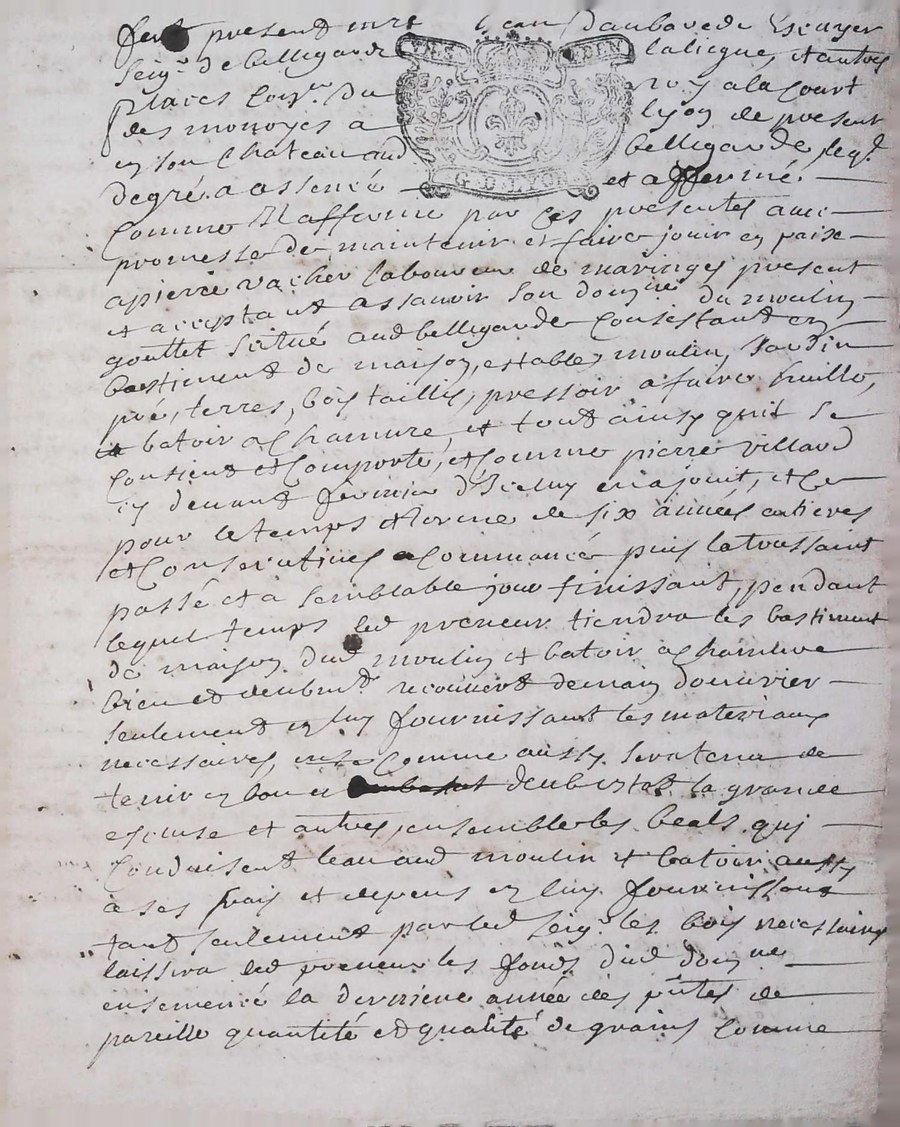 fut present mre Jean Daubarede Escuyer
Seigr. de bellegarde laliegue, et autres
places Consr. du roy a la Court
des monoyes a lyon de present
en son Chateau aud bellegarde leql.
degré a assencé et affermé
Comme Il afferme par ces presentes avec
promesse de maintenir et faire jouir en paix
a pierre vacher laboureur de maringes present
et acceptant assavoir son domaine du moulin
gouttet scitué aud bellegarde Consistant en
bastiment de maison, estables moulin, Jardin
pré, terres, bois taillis, pressoir a faire huille,
et batoir a Chanure, et tout ainsy quil se
Contient et Comporte, et Comme pierre villard
cy devant fermier dIceluy en a jouit, et ce
pour le temps et terme de six années entieres
et Consecutives a Commancé puis la toussaint
passé et a semblable jour finissant, pendant
lequel temps led preneur tiendra les bastiment
de maison dud moulin et batoir a Chanure
bien et deubmt recouvert de main douvrier
seulement en luy fournissant les materiaux
necessaires, Comme aussy sera tenu de
tenir en bon et deub estat la grande
escluse et autres, ensemble les beals qui
Conduisent leau aud moulin et batoir aussy
à ses frais et depens en luy fournissant
tant seulement par led Seigr. les bois necessaires
laissera led preneur les fonds dud domne
ensemencé la derniere année des pntes de
pareille quantité et qualité de grains Comme
G. D. LYON